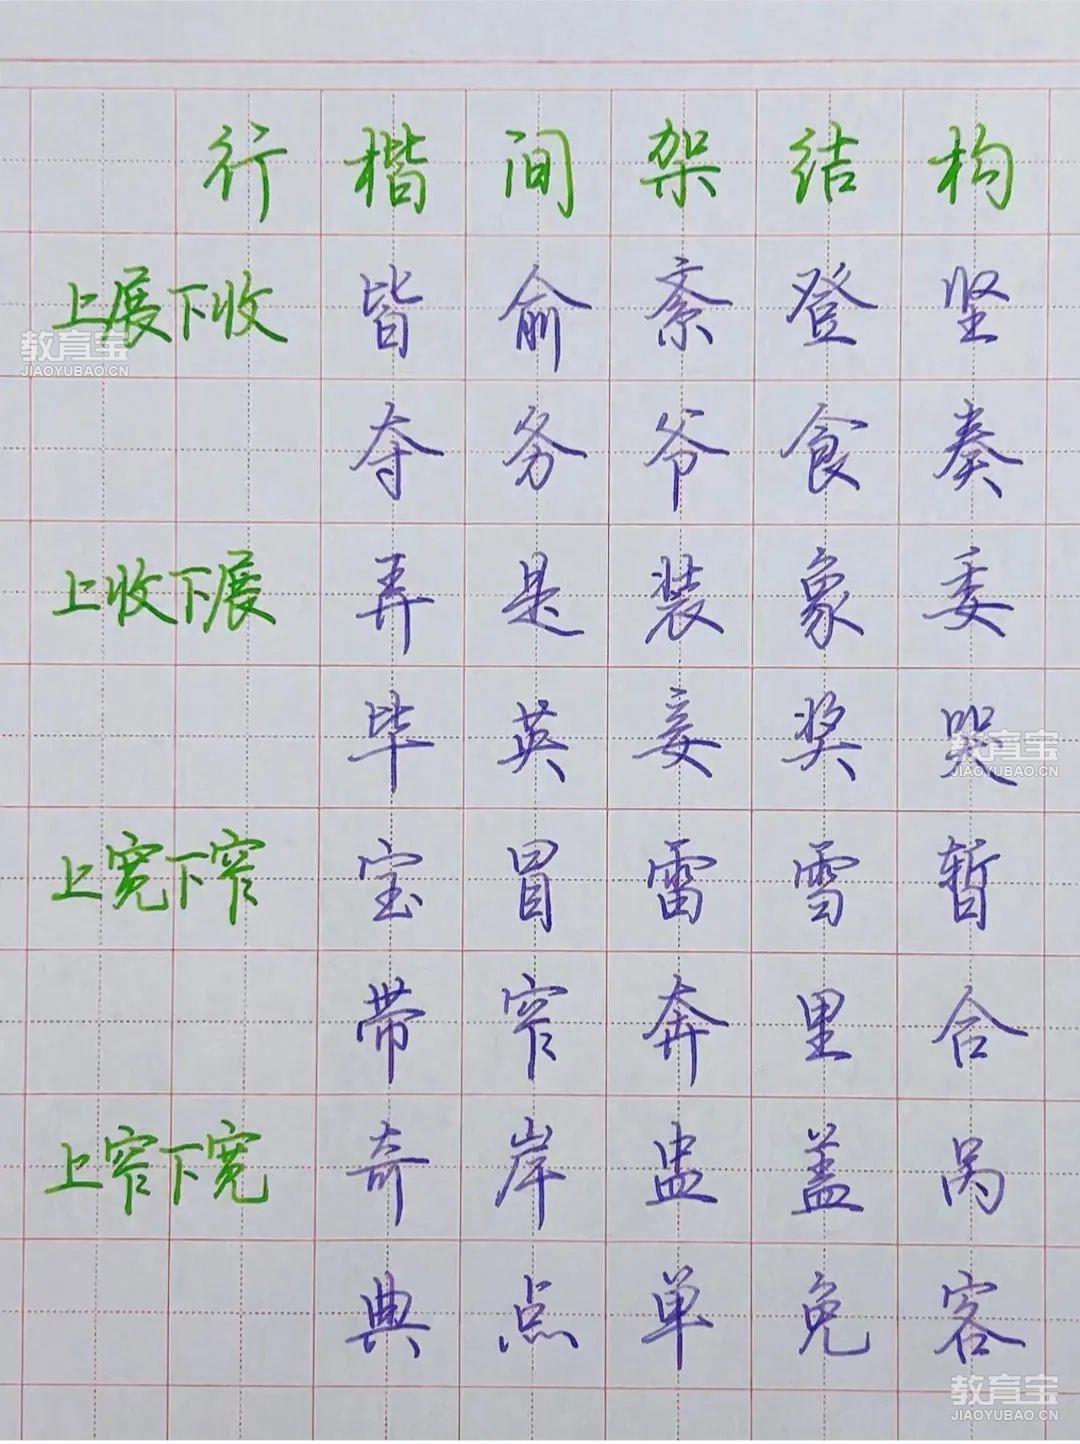 行楷间架结构
上展下收 皆 俞 紊 登 坚
夺 务 爷 食 奏
上收下展 弄 是 装 象 委
毕 英 妾 奖 哭
上宽下窄 宝 冒 雷 雪 暂
带 窄 奔 里 合
上窄下宽 奇 岸 盅 盖 呙
典 点 单 免 客
教育宝
JIAOYUBAO.CN
教育宝
JIAOYUBAO.CN
教育宝
JIAOYUBAO.CN